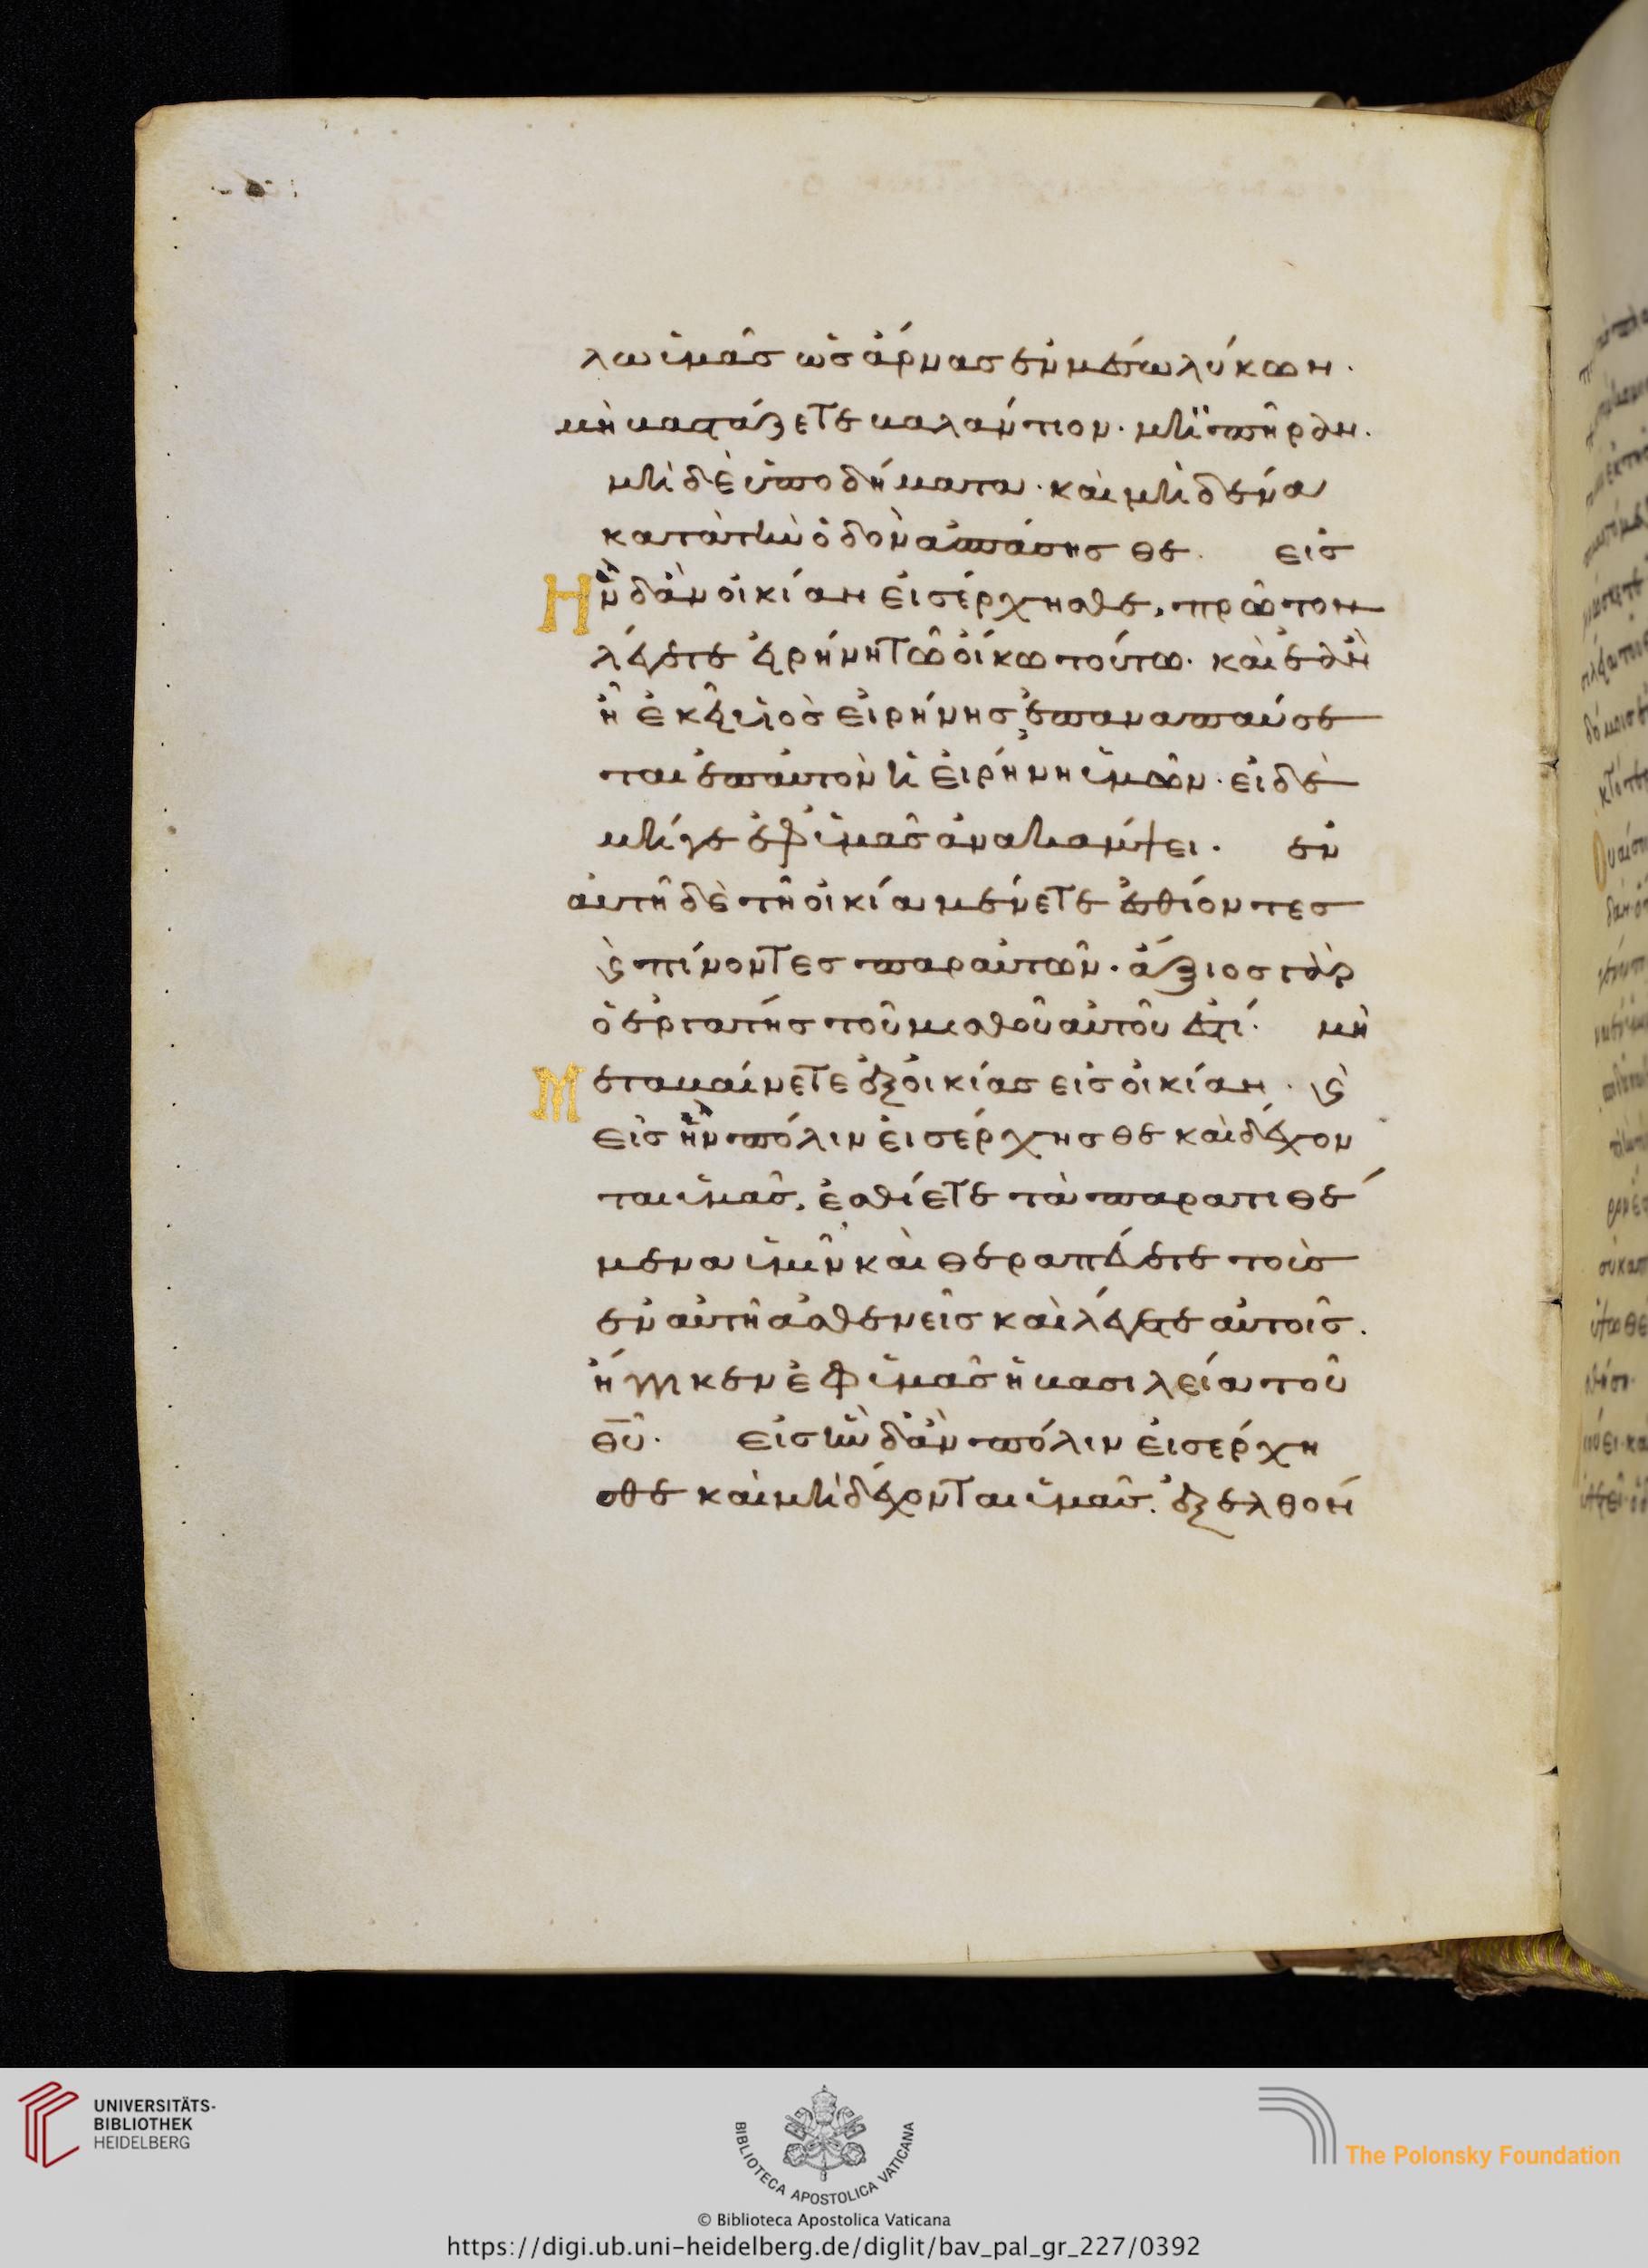 λω ὑμᾶς ὡς ἄρνας ἐν μέσω λύκων.
μὴ βαστάζετε βαλάντιον. μὴ πήραν.
μὴ δὲ ὑποδήματα. καὶ μηδένα
κατὰ τὴν ὁδὸν ἀσπάσησθε. εἰς
Ην δ' ἂν οἰκίαν εἰσέρχησθε, πρῶτον
λέγετε εἰρήνη τῶ οἴκω τούτω. καὶ ἐὰν
ἦ ἐκεῖ υἱὸς εἰρήνης, ἐπαναπαύσε
ται ἐπ' αὐτὸν ἡ εἰρήνη ὑμῶν. εἰ δὲ
μήγε ἐφ' ὑμᾶς ἀνακάμψει. ἐν
αὐτῆ δὲ τῆ οἰκία μένετε ἐσθίοντες
ϗ πίνοντες παρ' αὐτῶν. ἄξιος γὰρ
ὁ ἐργάτης τοῦ μισθοῦ αὐτοῦ ἐστί. μὴ
Μεταβαίνετε ἐξ οἰκίας εἰς οἰκίαν. ϗ
εἰς ἣν πόλιν εἰσέρχησθε καὶ δέχον
ται ὑμᾶς, ἐσθίετε τὰ παρατιθέ
μενα ὑμῖν καὶ θεραπεύετε τοὺς
ἐν αὐτῆ ἀσθενεῖς καὶ λέγετε αὐτοῖς.
ἤγγικεν ἐφ' ὑμᾶς ἡ βασιλεία τοῦ
θυ. εἰς ἣν δ' ἂν πόλιν εἰσέρχη
σθε καὶ μὴ δέχονται ὑμᾶς. ἐξελθόν
UNIVERSITÄTS-
BIBLIOTHEK
HEIDELBERG
BIBLIOTECA APOSTOLICA VATICANA
The Polonsky Foundation
© Biblioteca Apostolica Vaticana
https://digi.ub.uni-heidelberg.de/diglit/bav_pal_gr_227/0392